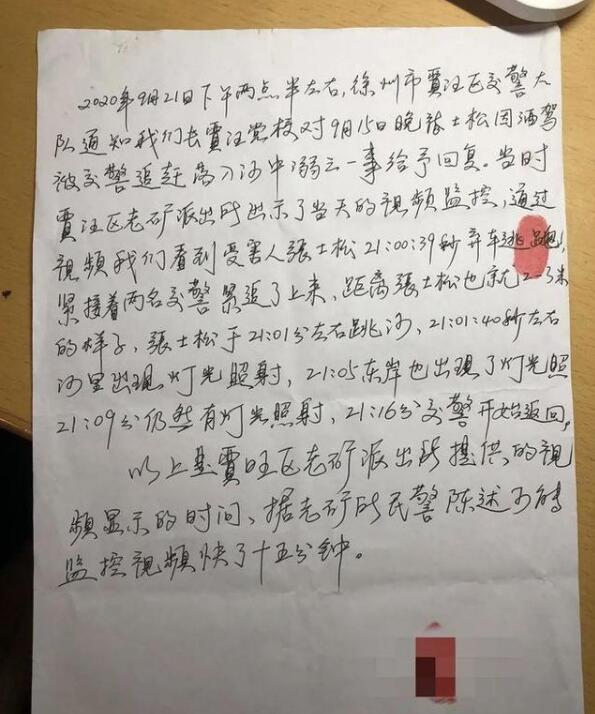 2020年9月21日下午两点半左右,徐州市贾汪区交警大
队通知我们去贾汪党校对9月15日晚张士松因酒驾
被交警追赶落入河中溺亡一事给予回复。当时
贾汪区老矿派出所出示了当天的视频监控,通过
视频我们看到受害人张士松21:00:39秒弃车逃跑,
紧接着两名交警紧追了上来,距离张士松也就2-3米
的样子,张士松于21:01分左右跳河,21:01:40秒左右
河里出现灯光照射,21:05东岸也出现了灯光照
21:09分仍然有灯光照射,21:16分交警开始返回,
以上是贾旺区老矿派出所提供的视
频显示的时间、据老矿所民警陈述
监控视频快了十五分钟。